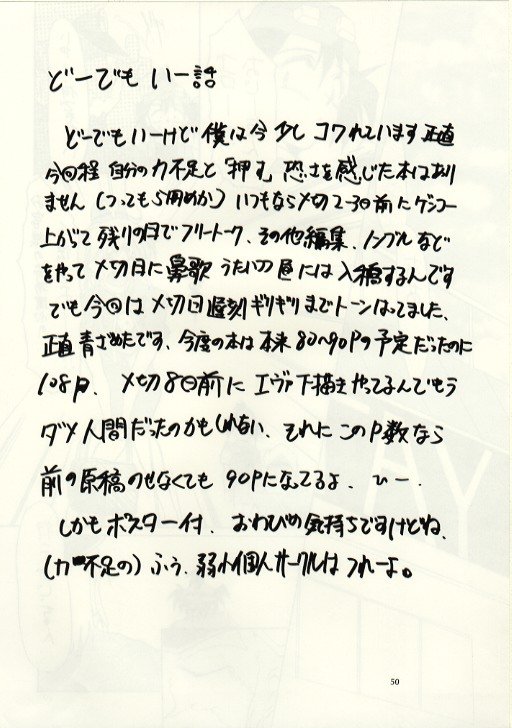 どーでもいー話
どーでもいーけど僕は今少しコワれています正直
今回程自分の力不足と「押す」恐さを感じた本はあり
ません(つっても5冊めか)いつもなら〆切2~3日前にゲンコー
上がって残りの日でフリートーク、その他編集、ノンブルなど
をやって〆切日に鼻歌うたいつつ昼には入稿するんです
でも今回は〆切日遅刻ギリギリまでトーンはってました、
正直青ざめたです、今度の本は本来80~90Pの予定だったのに
108P、〆切8日前にエヴァ下描きやってるんでもう
ダメ人間だったのかもしれない、それにこのP数なら
前の原稿のせなくても90Pになってるよ、ひー.
しかもポスター付、おわびの気持ちですけどね、
(力不足の)ふぅ、弱小個人サークルはつれーよ。
50